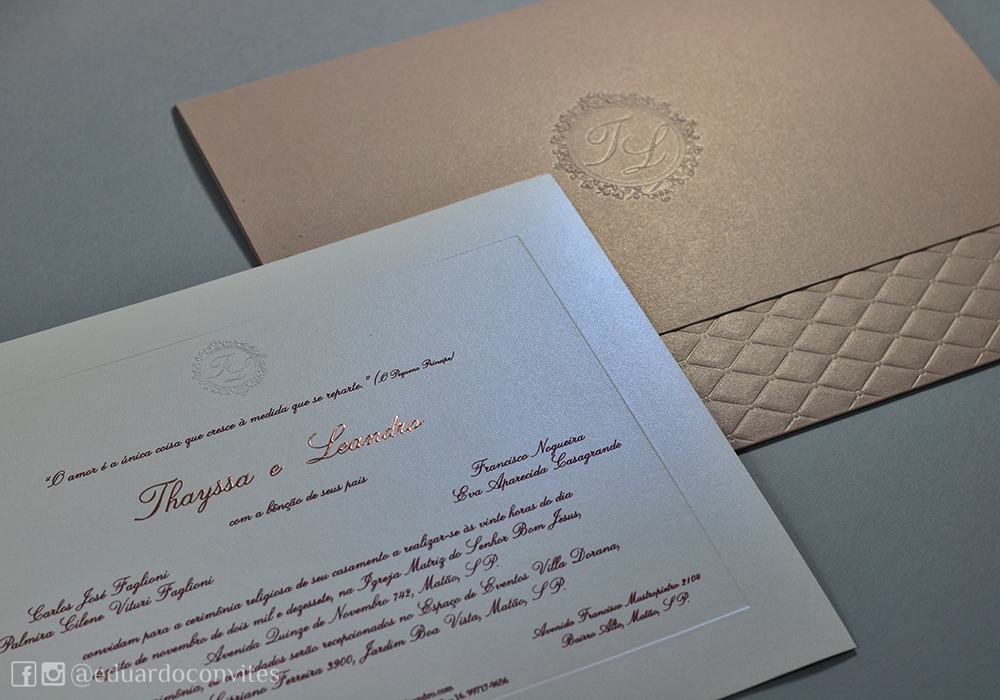 TL
TL
“O amor é a única coisa que cresce à medida que se reparte.” (O Pequeno Príncipe)
Thayssa e Leandro
com a bênção de seus pais
Francisco Nogueira
Eva Aparecida Casagrande
Carlos José Faglioni
Palmira Cilene Vituri Faglioni
convidam para a cerimônia religiosa de seu casamento a realizar-se às vinte horas do dia
dezoito de novembro de dois mil e dezessete, na Igreja Matriz do Senhor Bom Jesus,
Avenida Quinze de Novembro 742, Matão, SP.
cerimônia, os convidados serão recepcionados no Espaço de Eventos Villa Dorana,
Cipriano Ferreira 3900, Jardim Boa Vista, Matão, SP.
Avenida Francisco Mastropietro 2104
Bairro Alto, Matão, SP.
99717-9656
@eduardoconvites